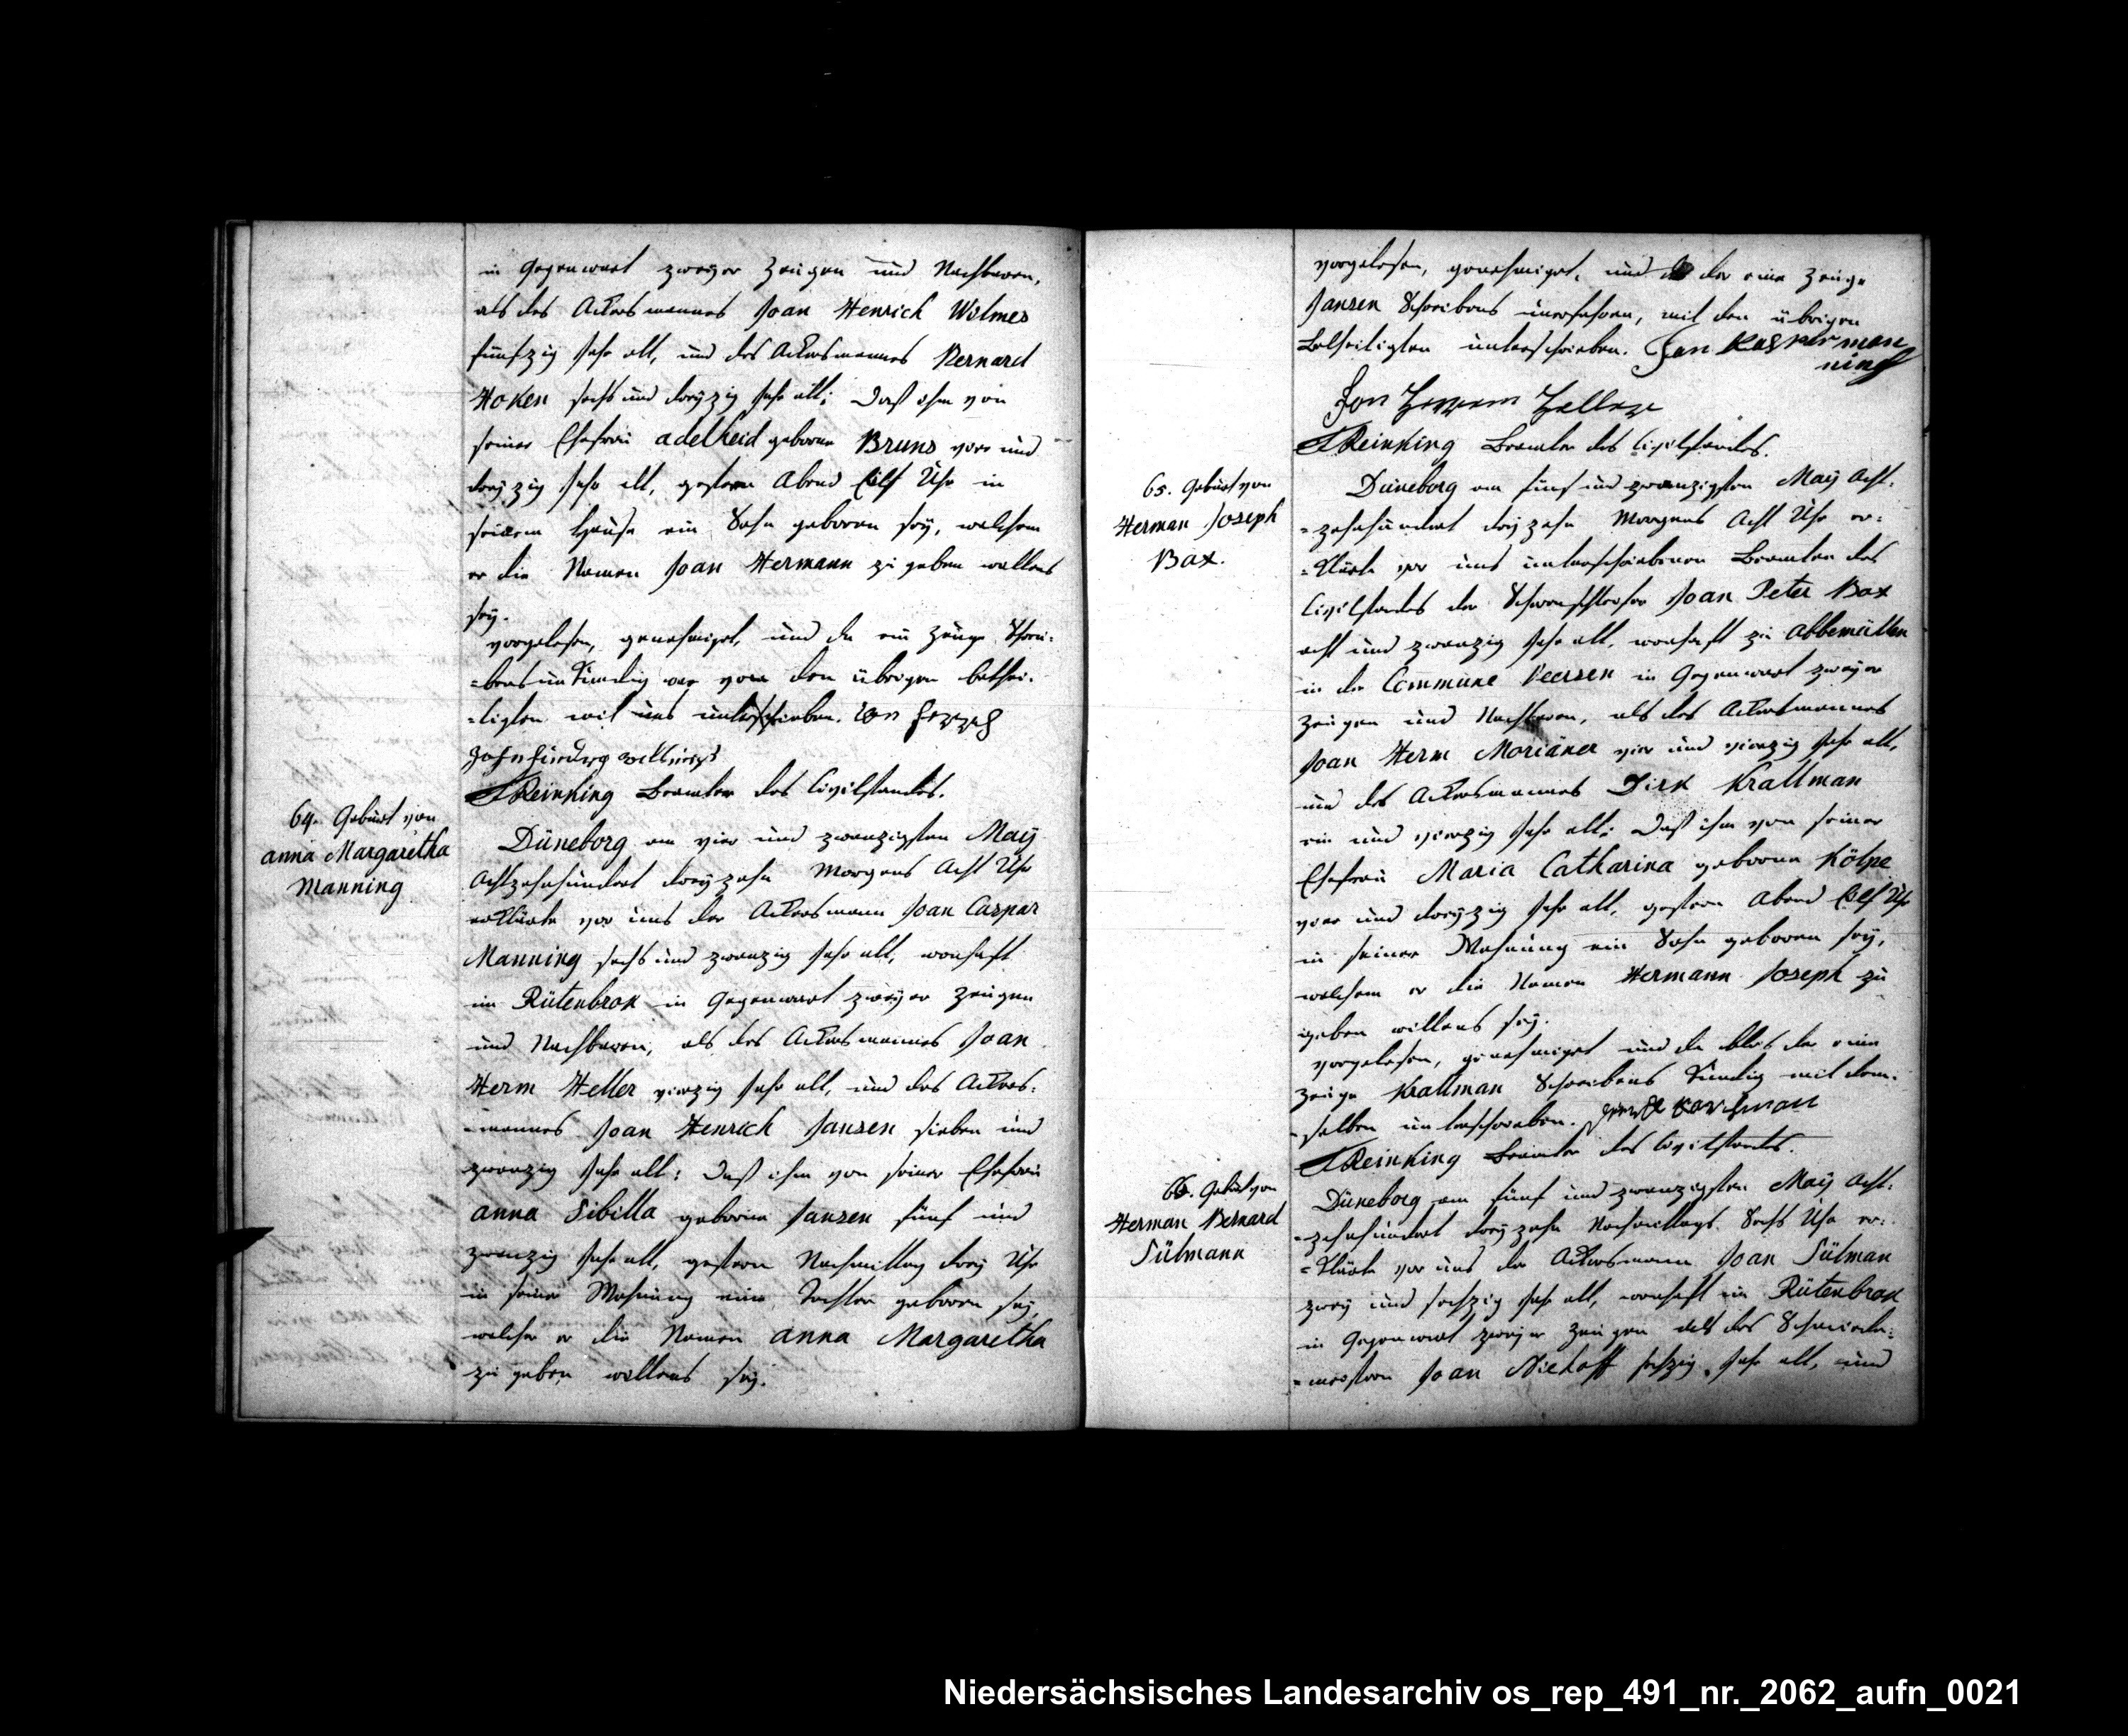 in Gegenwart zweyer Zeugen und Nachbaren,
als des Ackersmannes Joan Henrich Wilmes
fünfzig Jahr alt, und des Ackersmannes Bernard
Hoken sechs und dreyzig Jahr alt; Daß ihm von
seiner Ehefrau Adelheid geborne Bruns vier und
dreyzig Jahr alt, gestern Abend Eilf Uhr in
seinem Hause ein Sohn geboren sey, welchem
er die Namen Joan Hermann zu geben willens
sey.
vorgelesen, genehmiget, und da ein Zeuge Schrei-
=bens unkundig von den übrigen bethei-
=ligten mit uns unterschrieben.
Reinking Beamter des Civilstandes.
64. Geburt von
Anna Margaretha
Manning
Düneborg am vier und zwanzigsten May
Achtzehnhundert dreyzehn Morgens Acht Uhr
erklärte vor uns der Ackersmann Joan Caspar
Manning sechs und zwanzig Jahr alt, wonhaft
im Rütenbrok in Gegenwart zweyer Zeugen
und Nachbaren, als des Ackersmannes Joan
Herm Heller vierzig Jahr alt, und des Ackers-
=mannes Joan Henrich Jansen sieben und
zwanzig Jahr alt: Daß ihm von seiner Ehefrau
Anna Sibilla geborne Jansen fünf und
zwanzig Jahr alt, gestern Nachmittag drey Uhr
in seiner Wohnung eine Tochter geboren sey,
welcher er die Namen Anna Margaretha
zu geben willens sey.
vorgelesen, genehmiget, und der eine Zeuge
Jansen Schreibens unerfahren, mit den übrigen
Betheiligten unterschrieben. Jan Kasper man
ning
Jan Herrem Heller
Reinking Beamter des Civilstandes.
65. Geburt von
Herman Joseph
Bax.
Düneborg am fünf und zwanzigsten May Acht-
=zehnhundert dreyzehn Morgens Acht Uhr er-
=klärte vor uns unterschriebenen Beamten des
Civilstandes der Joan Peter Bax
acht und zwanzig Jahr alt, wonhaft zu Abbemühlen
in der Commune Veersen in Gegenwart zweyer
Zeugen und Nachbaren, als des Ackersmannes
Joan Herm Moriäner vier und vierzig Jahr alt,
und des Ackersmannes Dirk Krallman
ein und vierzig Jahr alt; Daß ihm von seiner
Ehefrau Maria Catharina geborne Kölpe
vier und dreyzig Jahr alt, gestern Abend Eilf Uhr
in seiner Wohnung ein Sohn geboren sey,
welchem er die Namen Hermann Joseph zu
geben willens sey.
vorgelesen, genehmiget und da blos der eine
Zeuge Krallman Schreibens kundig mit dem-
=selben unterschrieben.
Reinking Beamter des Civilstandes.
66. Geburt von
Herman Bernard
Sülmann
Düneborg am fünf und zwanzigsten May Acht-
=zehnhundert dreyzehn Nachmittags Sechs Uhr er-
=klärte vor uns der Ackersmann Joan Sülman
zwey und sechzig Jahr alt, wonhaft im Rütenbrok
in Gegenwart zweyer Zeugen als des Schneider-
=meistern Joan Niehoff sechzig Jahr alt, und
Niedersächsisches Landesarchiv os_rep_491_nr._2062_aufn_0021